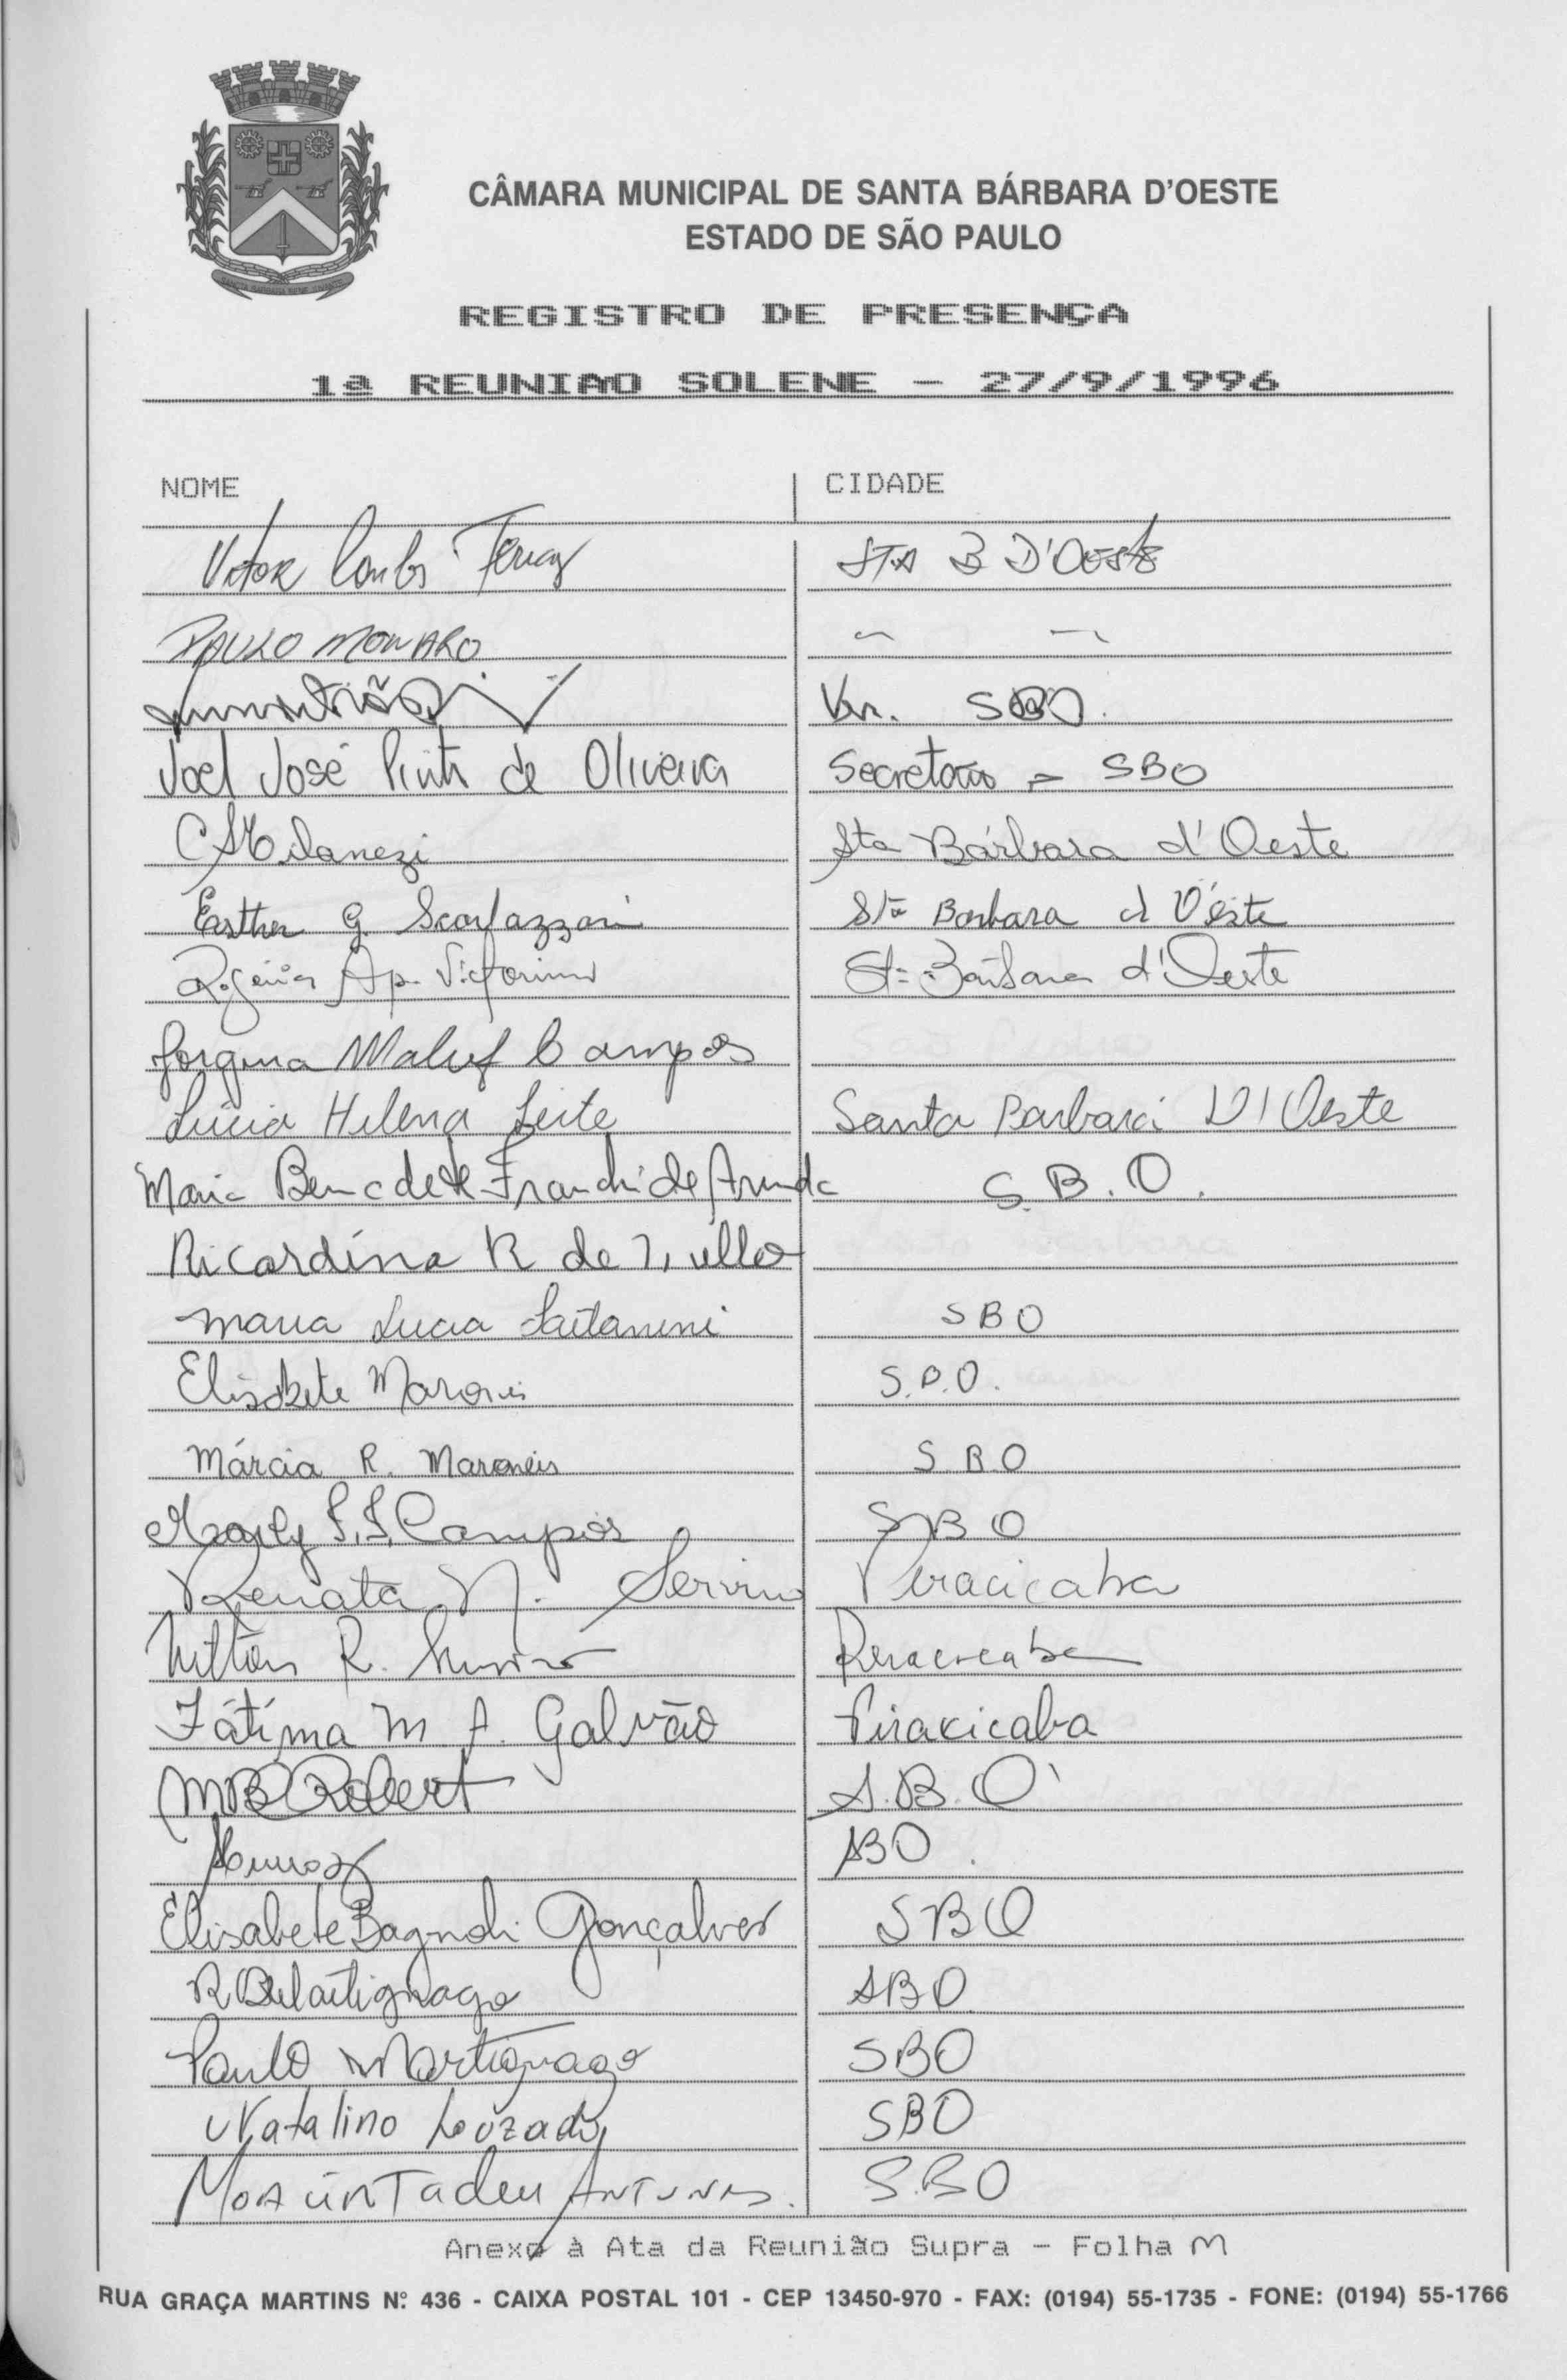 CÂMARA MUNICIPAL DE SANTA BÁRBARA D'OESTE
ESTADO DE SÃO PAULO
REGISTRO DE PRESENÇA
1ª REUNIÃO SOLENE - 27/9/1996
NOME CIDADE
Vitor STA B D'OESTE
PAULO MONARO
Ver. SBO.
Joel José Pinto de Oliveira Secretário - SBO
Sta Bárbara d'Oeste
Esther G. Scarlazzari Sta Barbara d'Oeste
Rogéria Ap. Victorino Sta Bárbara d'Oeste
Jorgina Maluf Campos
Lucia Helena Leite Santa Barbara D'Oeste
Maria Bernadete Franchi de Arruda S.B.O.
Ricardina R de
Maria Lucia SBO
Elisabete S.B.O.
Márcia R. S.B.O
S.I. Campos SBO
Renata N. Piracicaba
Nilton R. Piracicaba
Fátima M A. Galvão Piracicaba
MB Robert S.B.O
SBO.
Elisabete Bagnoli Gonçalves SBO
SBO
Paulo Martignago SBO
Natalino Louzada SBO
Tadeu ANTUNES. S.BO
Anexo à Ata da Reunião Supra - Folha M
RUA GRAÇA MARTINS Nº 436 - CAIXA POSTAL 101 - CEP 13450-970 - FAX: (0194) 55-1735 - FONE: (0194) 55-1766